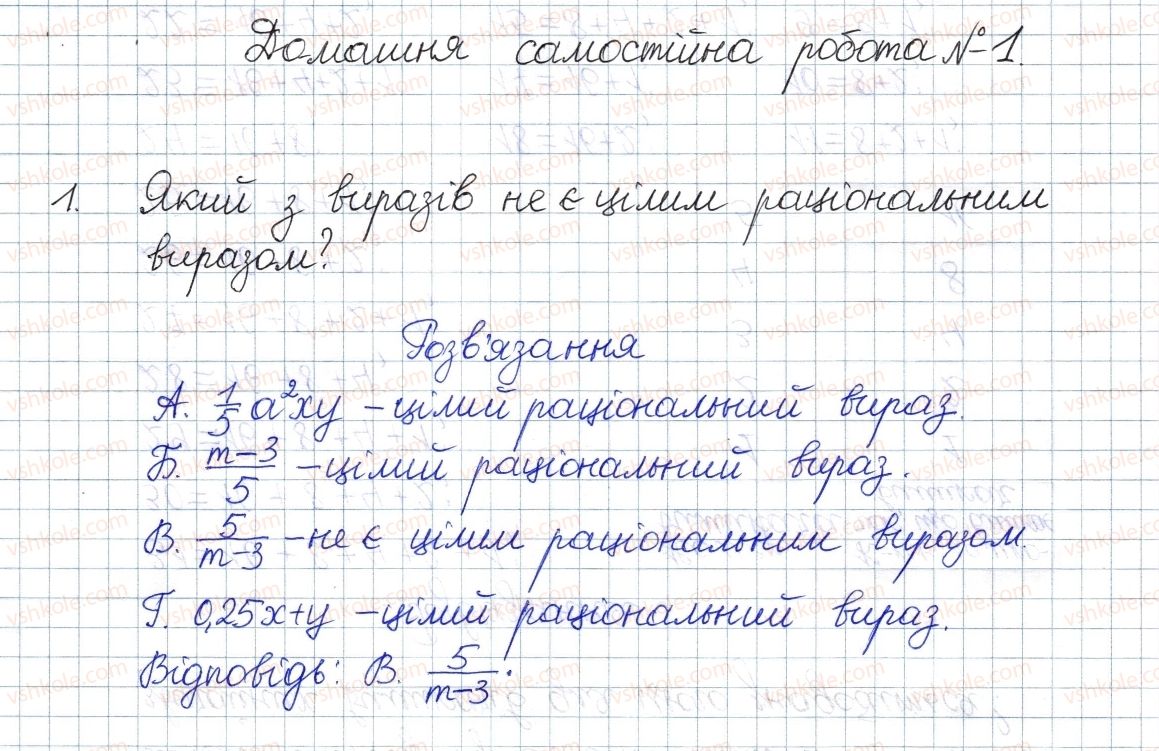 Домашня самостійна робота №1.
1. Який з виразів не є цілим раціональним
виразом?
Розв'язання
А. 1/5 a²xy – цілий раціональний вираз.
Б. (m–3)/5 – цілий раціональний вираз.
В. 5/(m–3) – не є цілим раціональним виразом.
Г. 0,25x+y – цілий раціональний вираз.
Відповідь: В. 5/(m–3).